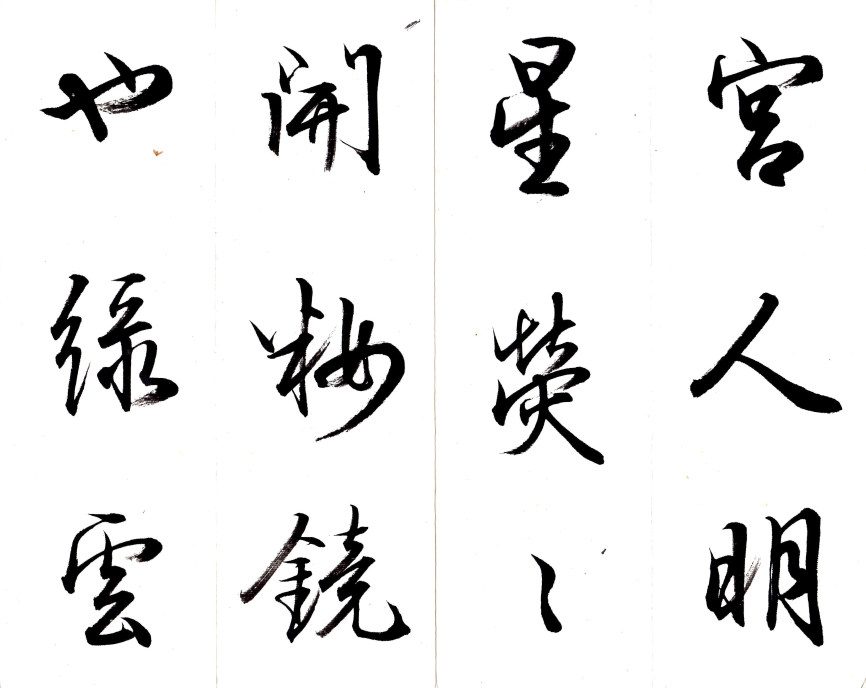 宮人明
星熒〻
開粧鏡
也綠雲